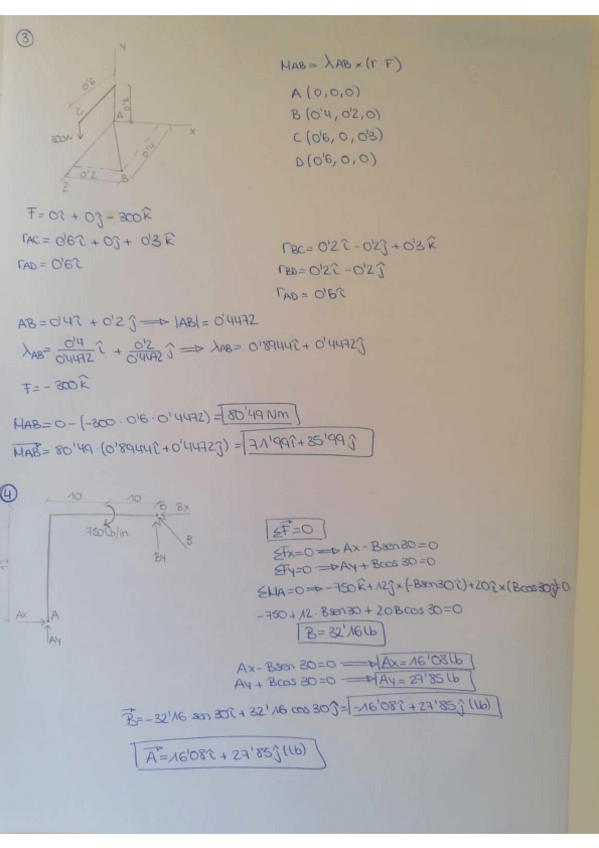 3
MAB = λAB × (r · F)
Y
0'6
A (0,0,0)
C
A
0'3
B (0'4, 0'2, 0)
300N
X
C (0'6, 0, 0'3)
0'4
D (0'6, 0, 0)
0'2
B
Z
F = 0î + 0ĵ - 300k̂
rAC = 0'6î + 0ĵ + 0'3k̂
rBC = 0'2î - 0'2ĵ + 0'3k̂
rAD = 0'6î
rBD = 0'2î - 0'2ĵ
rAD = 0'6î
AB = 0'4î + 0'2ĵ ⟹ |AB| = 0'4472
λAB = 0'4/0'4472 î + 0'2/0'4472 ĵ ⟹ λAB = 0'8944î + 0'4472ĵ
F = -300k̂
MAB = 0 - (-300 · 0'6 · 0'4472) = 80'49 Nm
MAB = 80'49 · (0'8944î + 0'4472ĵ) = 71'99î + 35'99ĵ
4
10 10
B Bx
750lb/in
By
B
12
Ax
A
Ay
ΣF = 0
ΣFx = 0 ⟹ Ax - Bsen30 = 0
ΣFy = 0 ⟹ Ay + Bcos30 = 0
ΣMA = 0 ⟹ -750k̂ + 12ĵ × (-Bsen30î) + 20î × (Bcos30ĵ) = 0
-750 + 12 · Bsen30 + 20Bcos30 = 0
B = 32'16 lb
Ax - Bsen30 = 0 ⟹ Ax = 16'08 lb
Ay + Bcos30 = 0 ⟹ Ay = 27'85 lb
B = -32'16 sen30î + 32'16 cos30ĵ = -16'08î + 27'85ĵ (lb)
A = 16'08î + 27'85ĵ (lb)